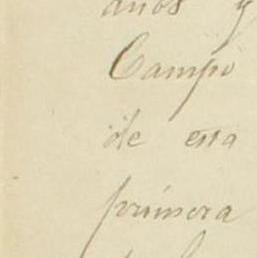 años y
Campo
de esta
primera